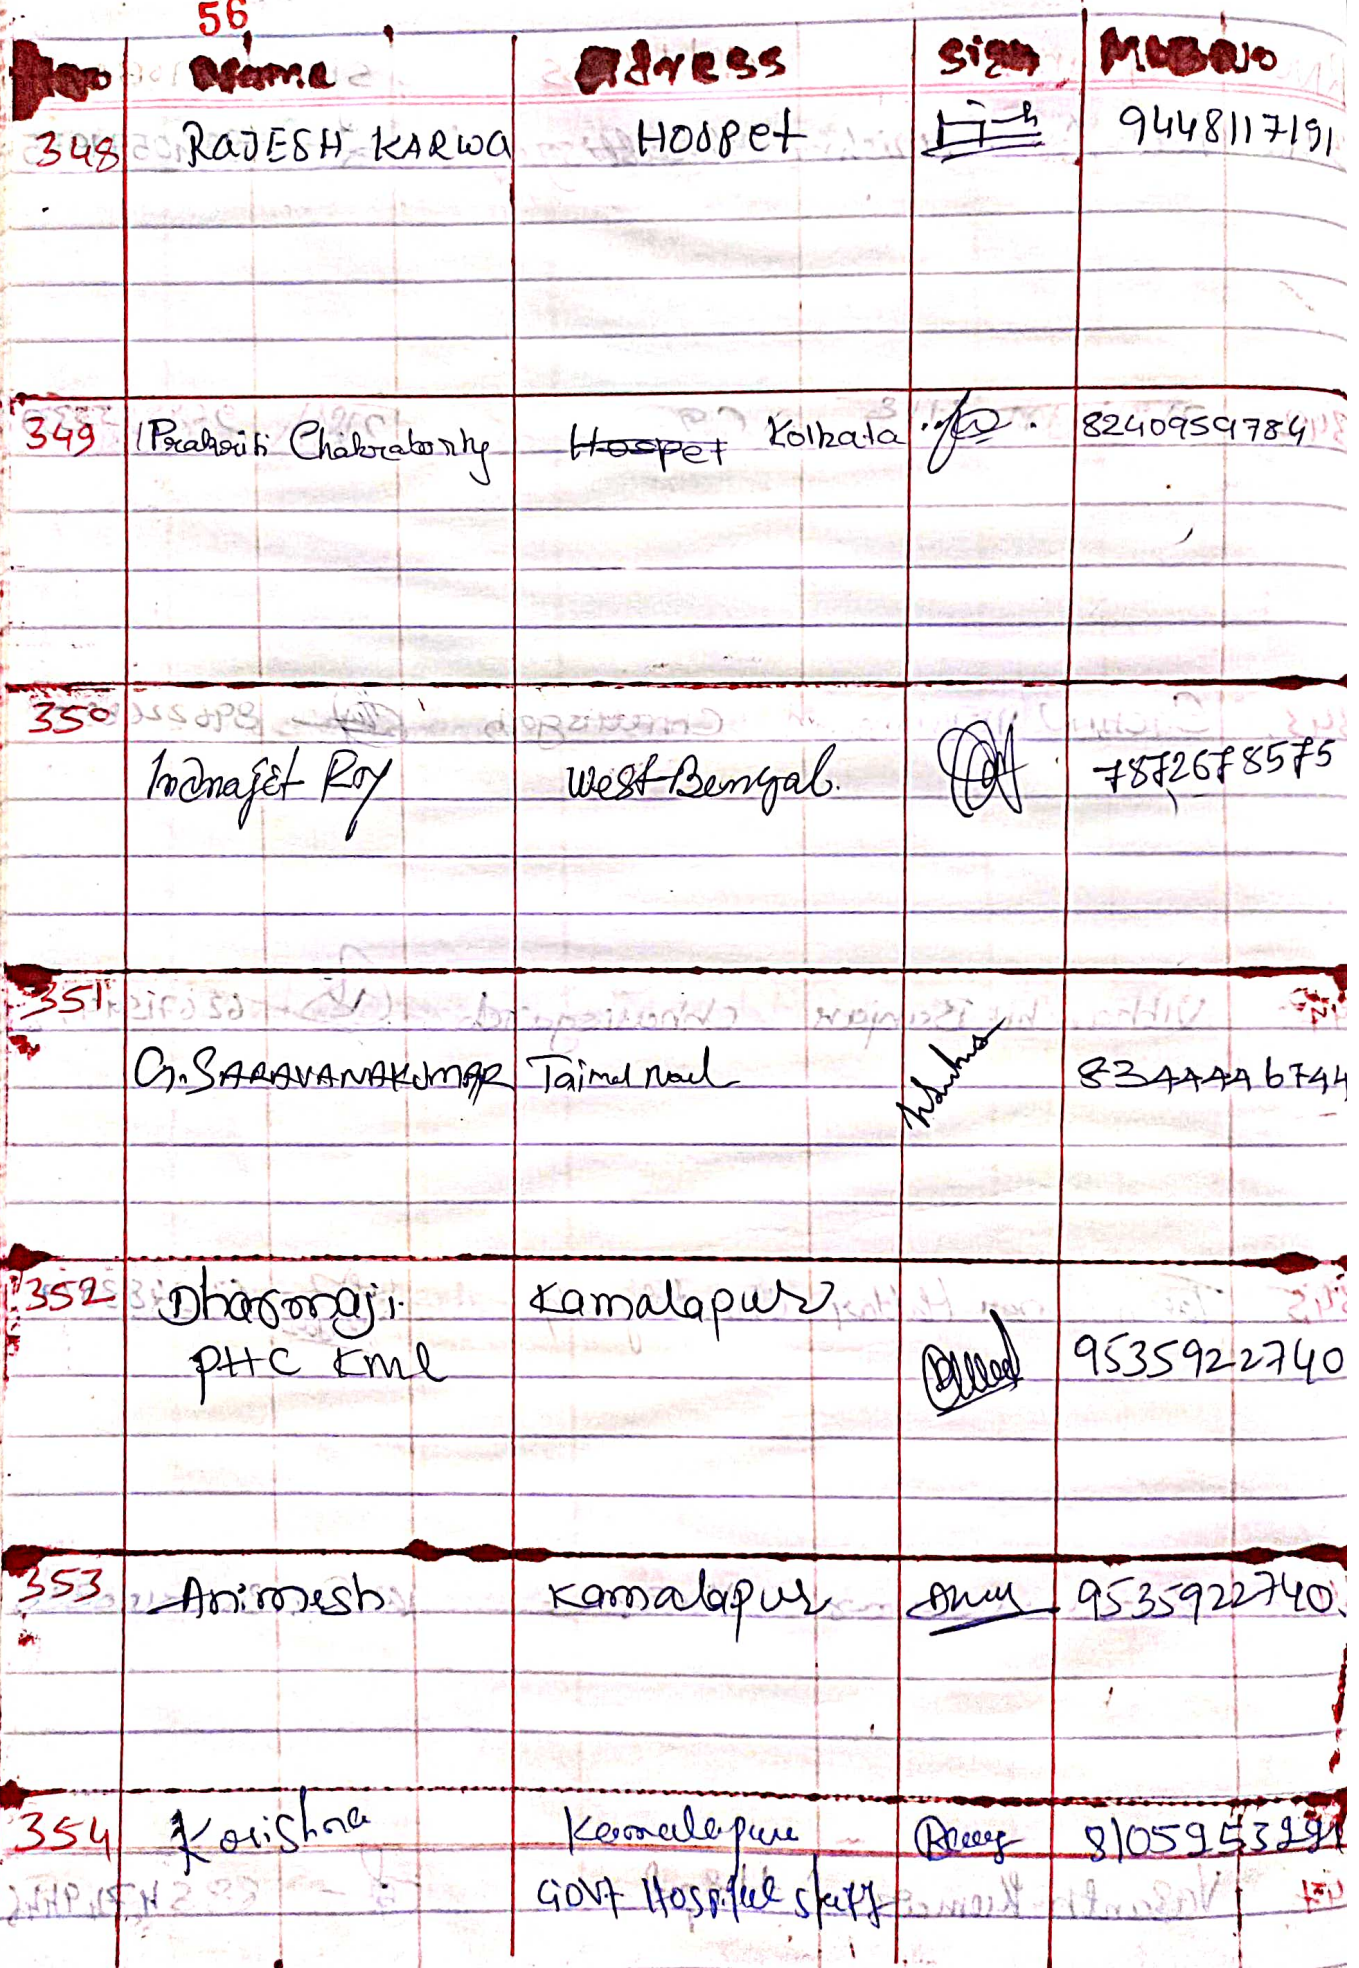 56
No Name Adress Sign Mob No
348 RAJESH KARWA Hospet 9448117191
349 Prakriti Chakraborty Hospet Kolkata 8240959784
350
Indrajit Roy West Bengal. 7872678575
351
G. SARAVANAKUMAR Taimel Nad 8344446744
352 Dharmaji Kamalapur
PHC Kml 9535922740
353 Animesh Kamalapur 9535922740
354 Krishna Kamalapur
GOVT Hospital staff